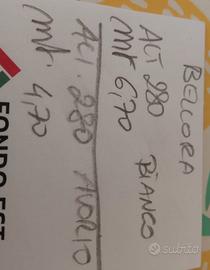 BELLORA
ALT 280 BIANCO
MT 6,70
ALT. 280 AVORIO
MT. 4,70
FONDO EST
subito